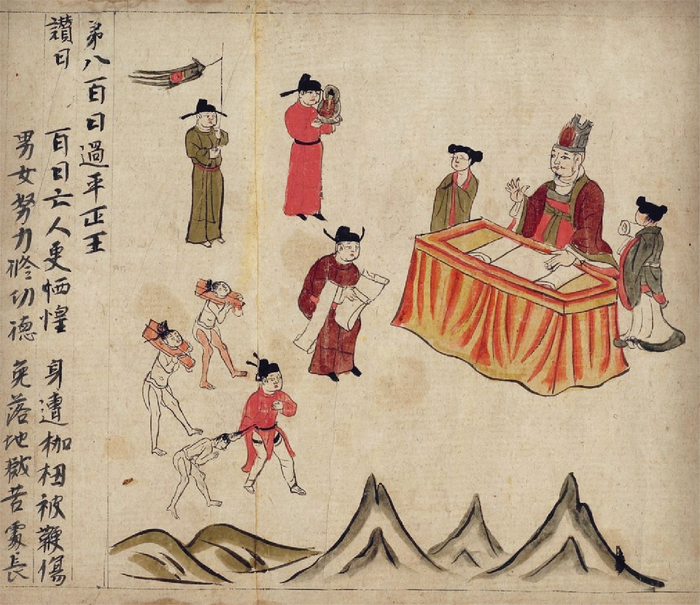 第八百日過平正王
讚曰 百日亡人更恓惶 身遭枷杻被鞭傷
男女努力修功德 免落地獄苦處長